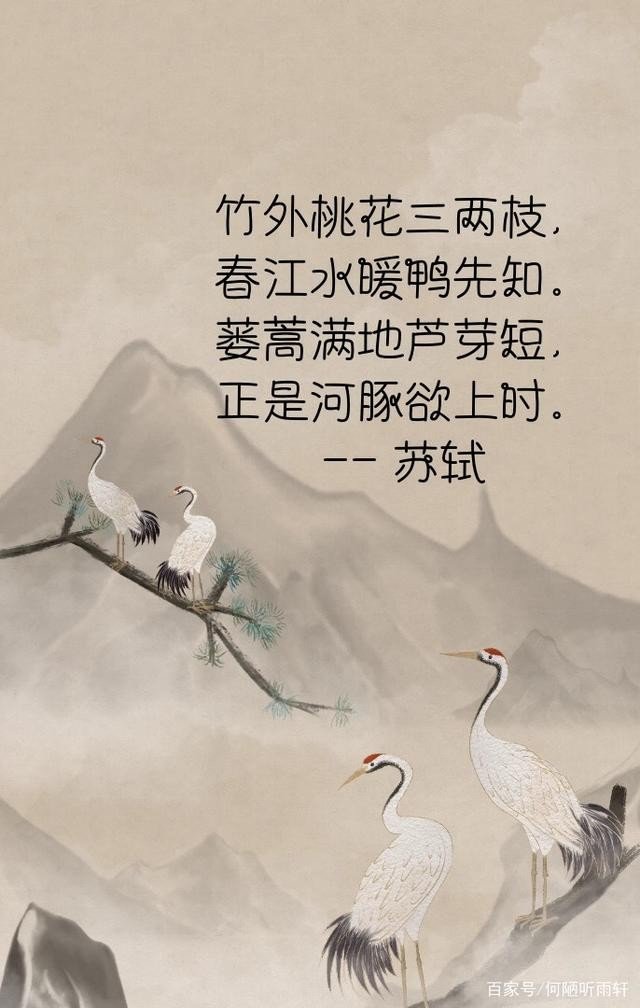 竹外桃花三两枝,
春江水暖鸭先知。
蒌蒿满地芦芽短,
正是河豚欲上时。
-- 苏轼
百家号/何陋听雨轩